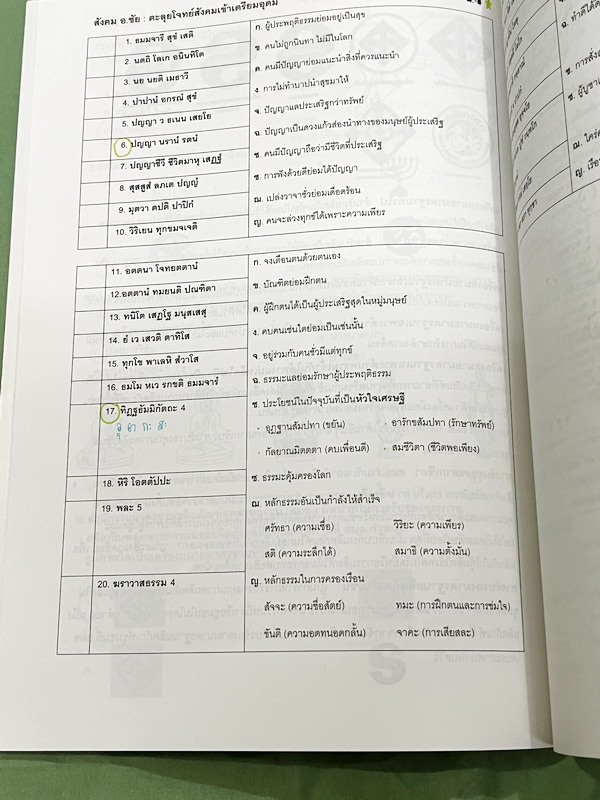 สังคม อ.ชัย : ตะลุยโจทย์สังคมเข้าเตรียมอุดม
1. ธมมจารี สุขํ เสติ
ก. ผู้ประพฤติธรรมย่อมอยู่เป็นสุข
2. นตถิ โลเก อนินทิโต
ข. คนไม่ถูกนินทา ไม่มีในโลก
3. นย นยติ เมธาวี
ค. คนมีปัญญาย่อมแนะนำสิ่งที่ควรแนะนำ
4. ปาปานํ อกรณํ สุขํ
ง. การไม่ทำบาปนำสุขมาให้
5. ปญญา ว ธเนน เสยโย
จ. ปัญญาแลประเสริฐกว่าทรัพย์
6. ปญญา นรานํ รตนํ
ฉ. ปัญญาเป็นดวงแก้วส่องนำทางของมนุษย์ผู้ประเสริฐ
7. ปญญาชีวี ชีวิตมาหุ เสฏฐํ
ช. คนมีปัญญาถือว่ามีชีวิตที่ประเสริฐ
8. สุสสูสํ ลภเต ปญญํ
ซ. การฟังด้วยดีย่อมได้ปัญญา
9. มุตวา ตปติ ปาปิกํ
ฌ. เปล่งวาจาชั่วย่อมเดือดร้อน
10. วิริเยน ทุกขมจเจติ
ญ. คนจะล่วงทุกข์ได้เพราะความเพียร
11. อตตนา โจทยตตานํ
ก. จงเตือนตนด้วยตนเอง
12.อตตานํ ทมยนติ ปณฑิตา
ข. บัณฑิตย่อมฝึกตน
13. ทนิโต เสฏโฐ มนุสเสสุ
ค. ผู้ฝึกตนได้เป็นผู้ประเสริฐสุดในหมู่มนุษย์
14. ยํ เว เสวติ ตาทิโส
ง. คบคนเช่นใดย่อมเป็นเช่นนั้น
15. ทุกโข พาเลหิ สํวาโส
จ. อยู่ร่วมกับคนชั่วมีแต่ทุกข์
16. ธมโม หเว รกขติ ธมมจารํ
ฉ. ธรรมะแลย่อมรักษาผู้ประพฤติธรรม
17. ทิฏฐธัมมิกัตถะ 4
ช. ประโยชน์ในปัจจุบันที่เป็นหัวใจเศรษฐี
อุ อา กะ สะ
- อุฏฐานสัมปทา (ขยัน) - อารักขสัมปทา (รักษาทรัพย์)
- กัลยาณมิตตตา (คบเพื่อนดี) - สมชีวิตา (ชีวิตพอเพียง)
18. หิริ โอตตัปปะ
ซ. ธรรมะคุ้มครองโลก
19. พละ 5
ฌ. หลักธรรมอันเป็นกำลังให้สำเร็จ
ศรัทธา (ความเชื่อ) วิริยะ (ความเพียร)
สติ (ความระลึกได้) สมาธิ (ความตั้งมั่น)
20. ฆราวาสธรรม 4
ญ. หลักธรรมในการครองเรือน
สัจจะ (ความซื่อสัตย์) ทมะ (การฝึกตนและการข่มใจ)
ขันติ (ความอดทนอดกลั้น) จาคะ (การเสียสละ)